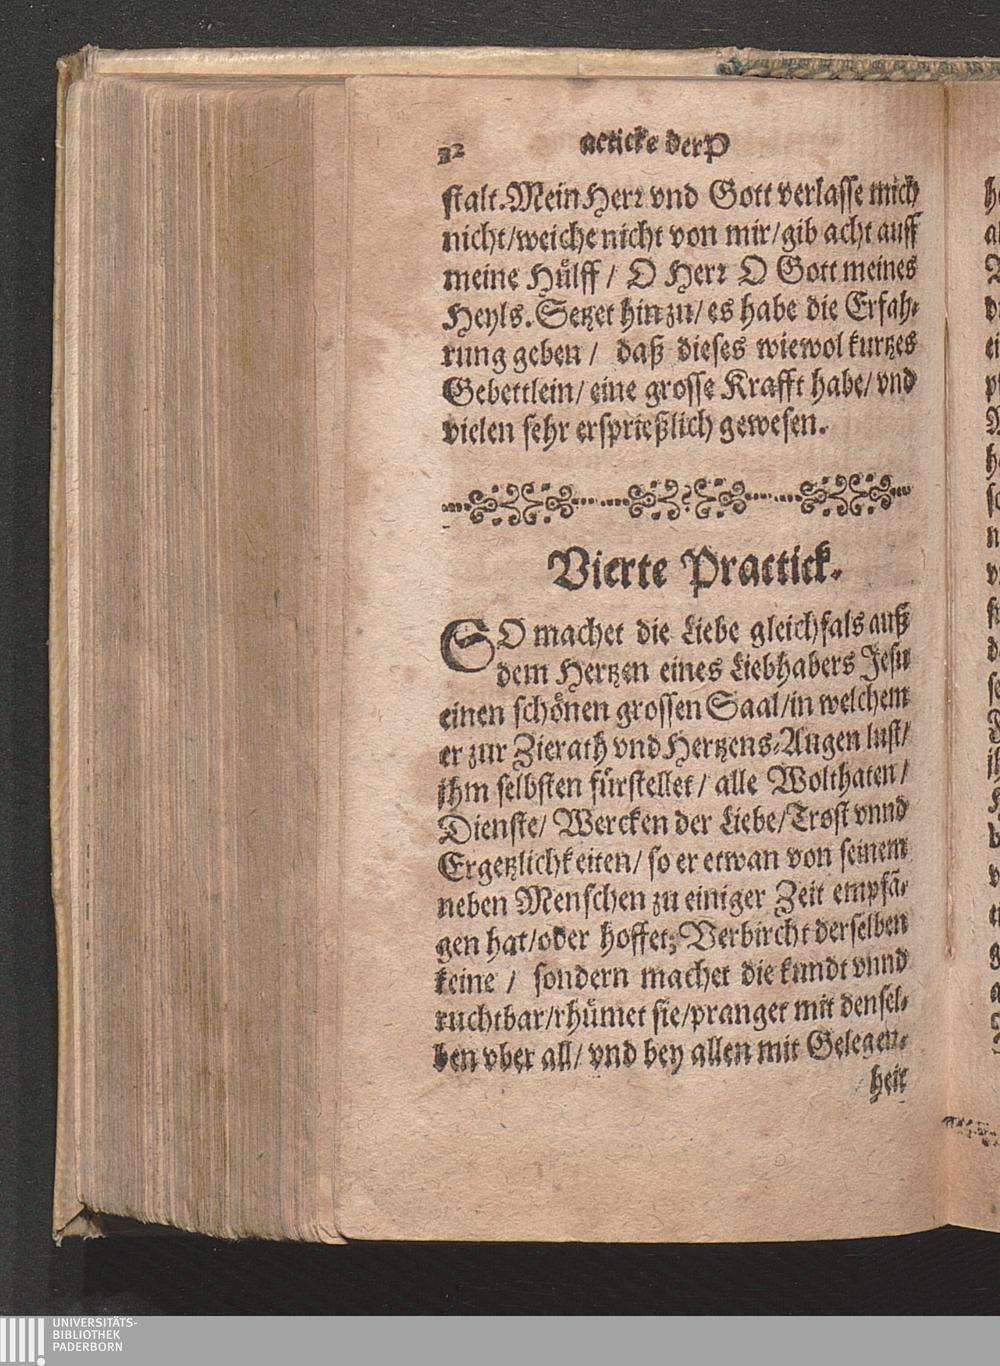 32 acticke der P
stalt. Mein Herr vnd Gott verlasse mich
nicht/weiche nicht von mir/gib acht auff
meine Hülff / O Herr O Gott meines
Heyls. Setzet hinzu/ es habe die Erfah-
rung geben / daß dieses wiewol kurtzes
Gebettlein/ eine grosse Krafft habe/ vnd
vielen sehr ersprießlich gewesen.
Vierte Practick.
SO machet die Liebe gleichfals auß
dem Hertzen eines Liebhabers Jesu
einen schönen grossen Saal/in welchem
er zur Zierath vnd Hertzens-Augen lust/
ihm selbsten fürstellet/ alle Wolthaten/
Dienste/ Wercken der Liebe/Trost vnnd
Ergetzlichkeiten/ so er etwan von seinem
neben Menschen zu einiger Zeit empfã-
gen hat/oder hoffet; Verbircht derselben
keine / sondern machet die kundt vnnd
ruchtbar/rhümet sie/pranget mit densel-
ben vber all/ vnd bey allen mit Gelegen-
heit
UNIVERSITÄTS-
BIBLIOTHEK
PADERBORN